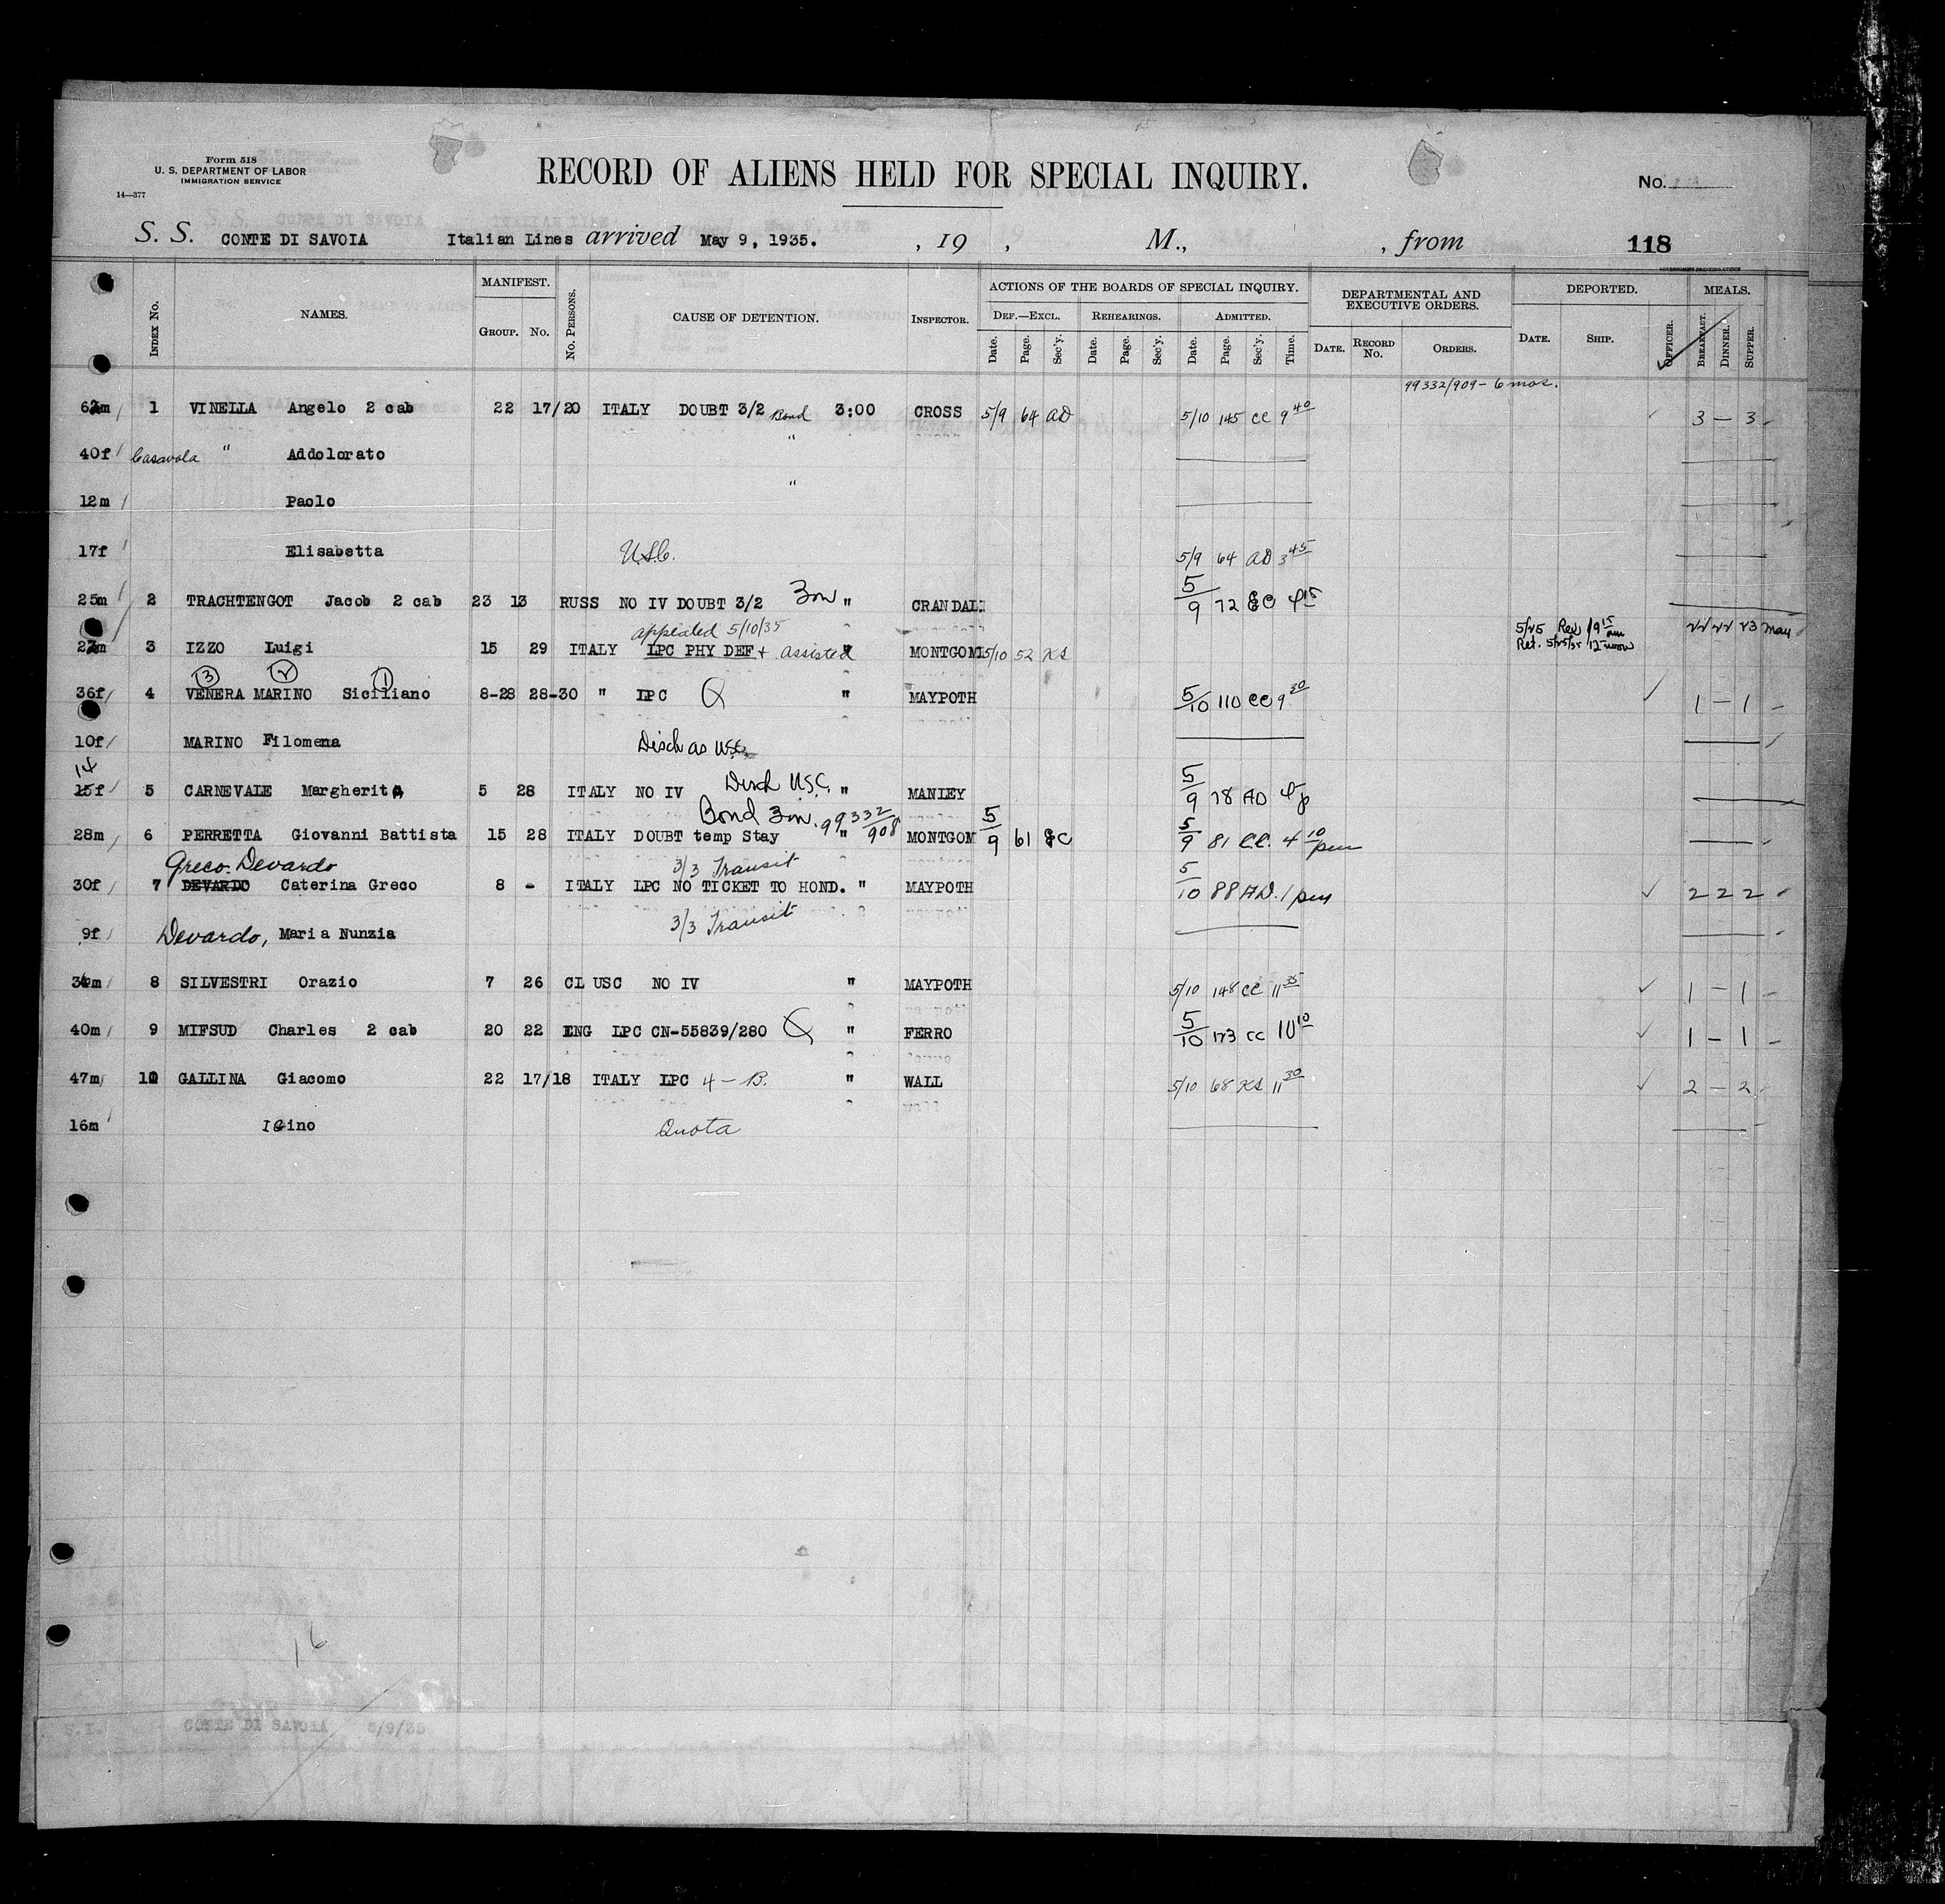 Form 518
U. S. DEPARTMENT OF LABOR
IMMIGRATION SERVICE
14—377
RECORD OF ALIENS HELD FOR SPECIAL INQUIRY.
No.
S. S. CONTE DI SAVOIA Italian Lines arrived May 9, 1935. , 19 , M., , from 118
GOVERNMENT PRINTING OFFICE
INDEX No. NAMES. MANIFEST. GROUP. No. No. PERSONS. CAUSE OF DETENTION. INSPECTOR. ACTIONS OF THE BOARDS OF SPECIAL INQUIRY. DEPARTMENTAL AND EXECUTIVE ORDERS. DEPORTED. MEALS.
DEF.—EXCL. REHEARINGS. ADMITTED.
Date. Page. Sec'y. Date. Page. Sec'y. Date. Page. Sec'y. Time. DATE. RECORD No. ORDERS. DATE. SHIP. OFFICER. BREAKFAST. DINNER. SUPPER.
99332/909 - 6 mos.
1 VINELLA Angelo 2 cab 22 17/20 ITALY DOUBT 3/2 Bond 3:00 CROSS 5/9 64 AD 5/10 145 CC 9 40 3 — 3
40f Casavola " Addolorato "
12m Paolo "
17f Elisabetta U.S.C. 5/9 64 AD 3 45
25m 2 TRACHTENGOT Jacob 2 cab 23 13 RUSS NO IV DOUBT 3/2 3m " CRANDALL 5/9 72 4 15
appealed 5/10/35
3 IZZO Luigi 15 29 ITALY LPC PHY DEF + assisted " MONTGOM 5/10 52 KS 5/25 9 15 am
Ret. 5/25/35 12 noon
3 2 1
36f 4 VENERA MARINO Siciliano 8-28 28-30 " LPC Q " MAYPOTH 5/10 110 CC 9 30 1 — 1
10f MARINO Filomena Disch as USC
14
15f 5 CARNEVALE Margherita 5 28 ITALY NO IV Disch U.S.C. " MANLEY 5/9 78 AD 4 p
Bond 3m. 99332/908
28m 6 PERRETTA Giovanni Battista 15 28 ITALY DOUBT temp Stay " MONTGOM 5/9 61 5/9 81 C.C. 4 10 pm
Greco-Devardo 3/3 Transit
30f 7 DEVARDO Caterina Greco 8 - ITALY LPC NO TICKET TO HOND. " MAYPOTH 5/10 88 AD. 1 pm 2 2 2
9f Devardo, Maria Nunzia 3/3 Transit
8 SILVESTRI Orazio 7 26 CL USC NO IV " MAYPOTH 5/10 148 CC 11 35 1 — 1
40m 9 MIFSUD Charles 2 cab 20 22 ENG LPC CN-55839/280 Q " FERRO 5/10 173 CC 10 10 1 — 1
47m 10 GALLINA Giacomo 22 17/18 ITALY LPC 4 — B. " WALL 5/10 68 KS 11 30 2 — 2
16m Igino Quota
16
S.I. CONTE DI SAVOIA 5/9/35